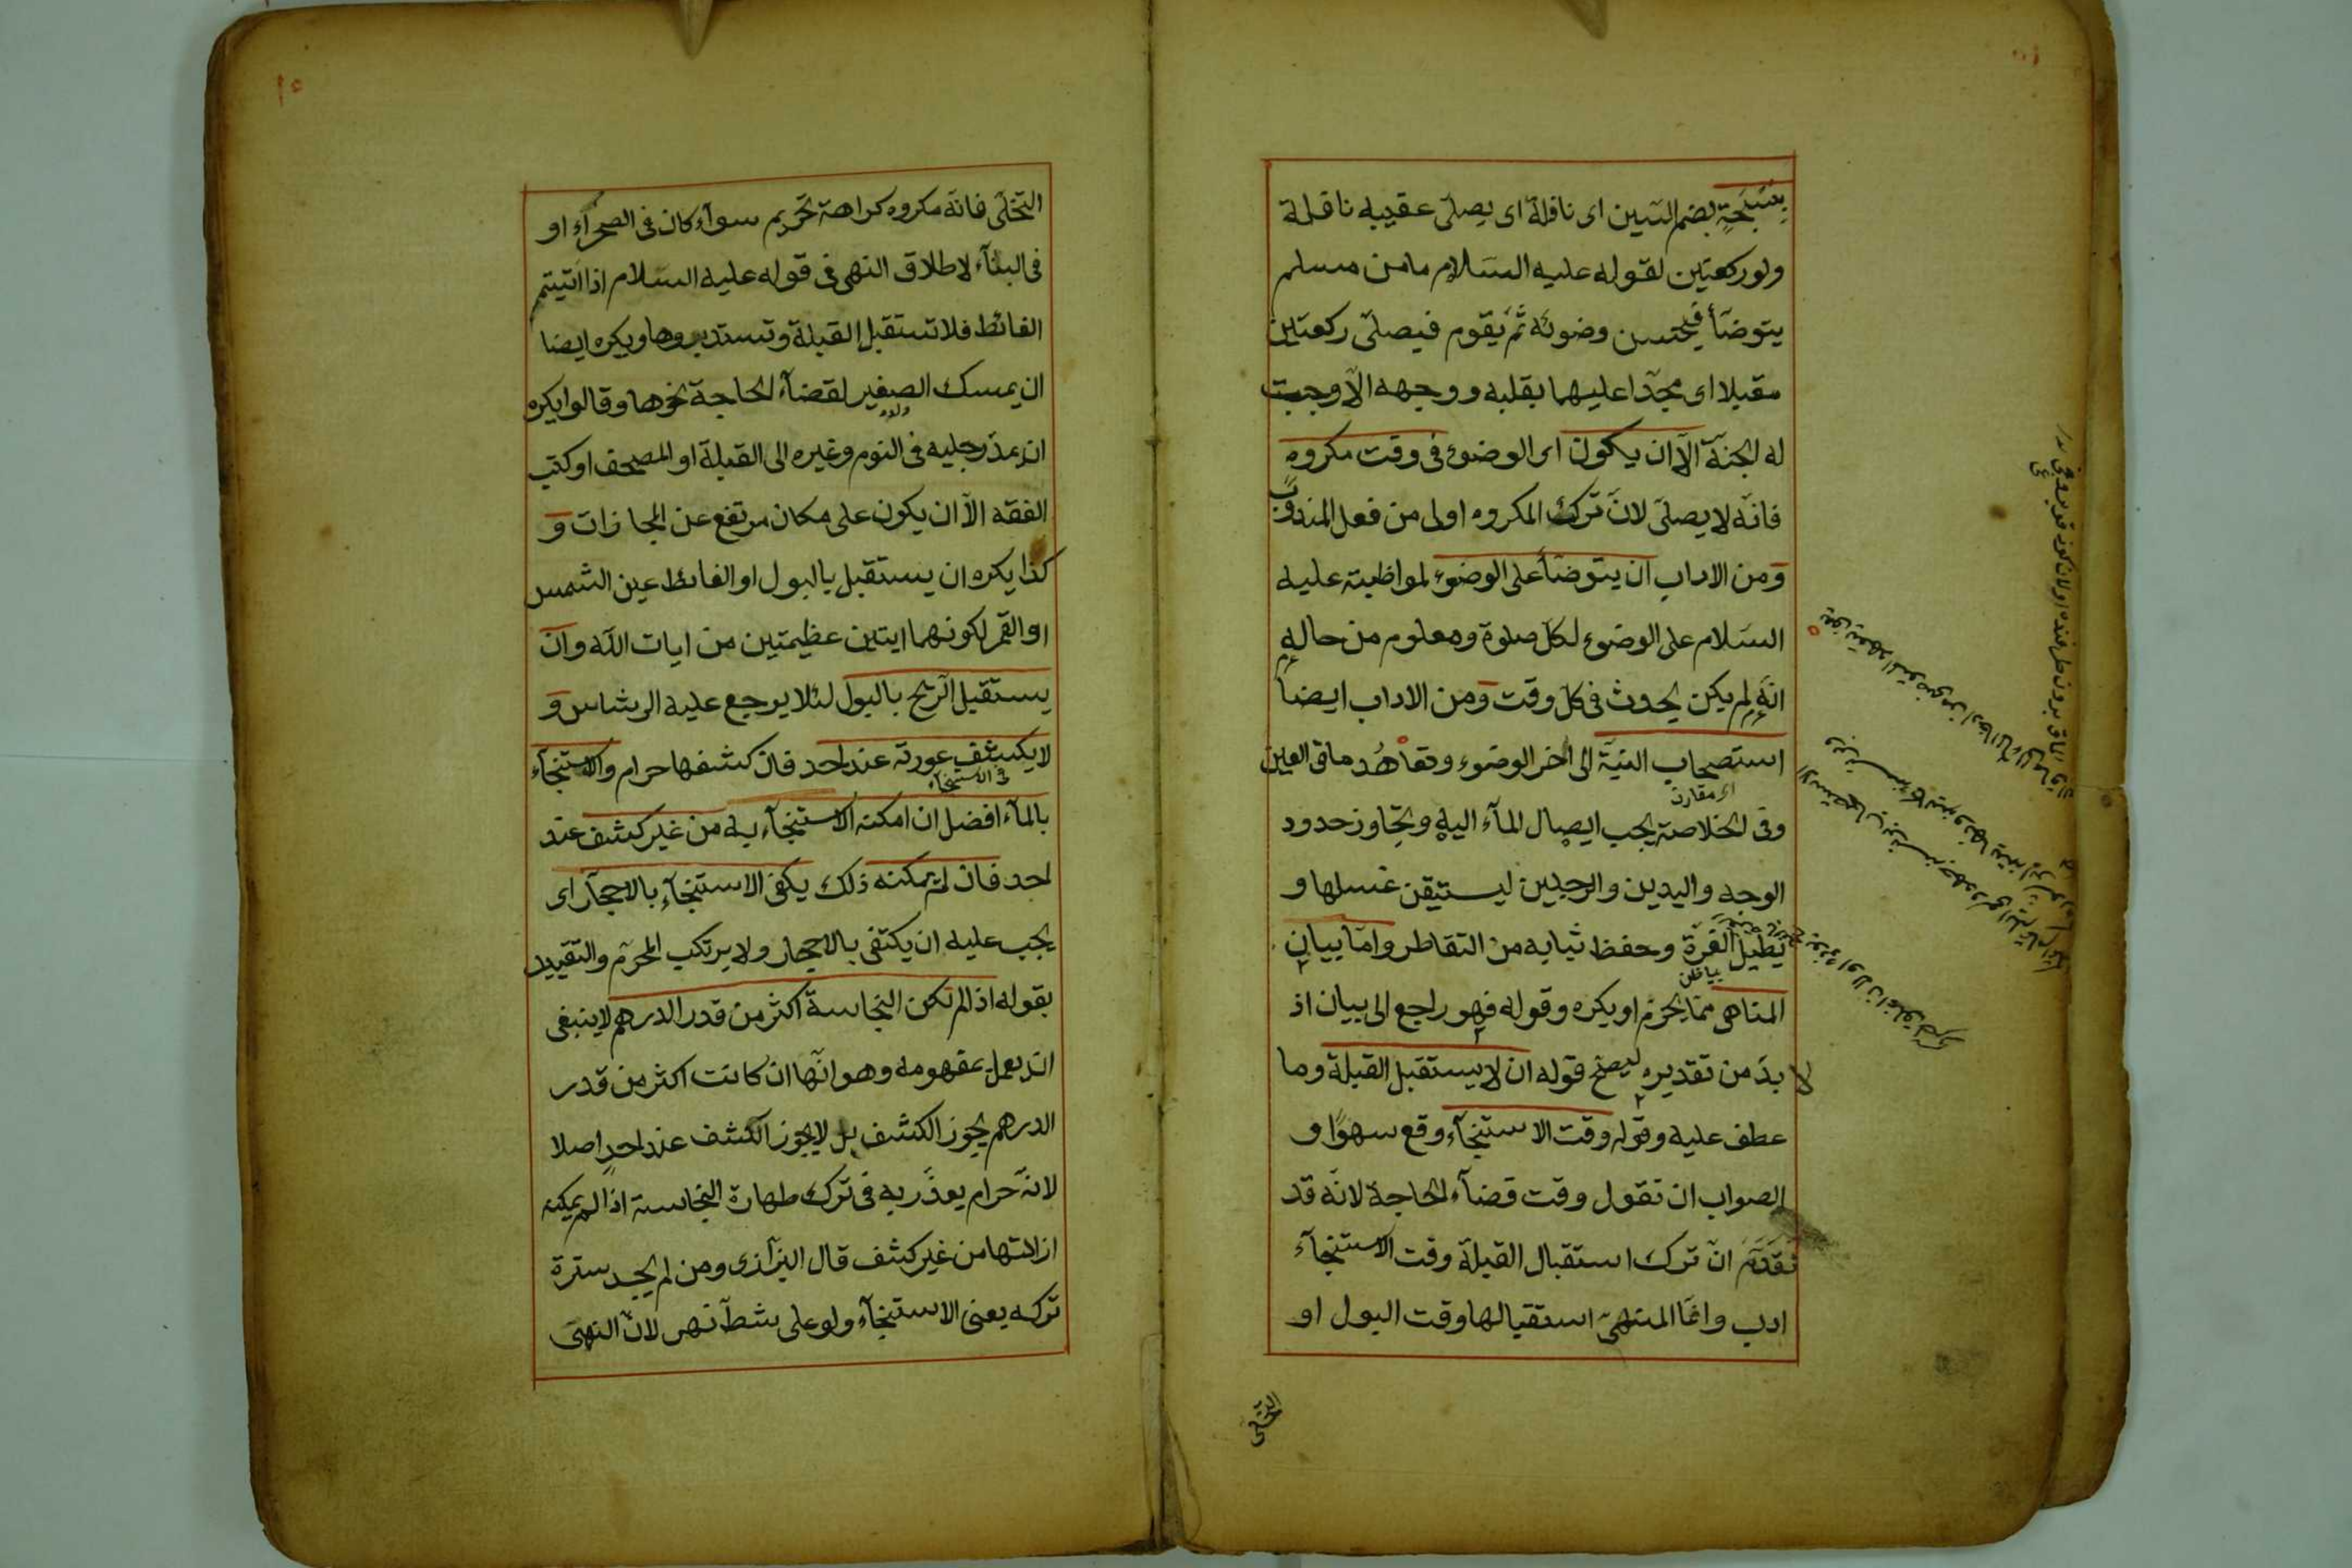 بسبحةٍ بضم السين اى نافلة اى يصلى عقيبه نافلة
ولو ركعتين لقوله عليه السلام ما من مسلم
يتوضأ فيحسن وضوئه ثم يقوم فيصلى ركعتين
مقبلا اى مجدا عليهما بقلبه ووجهه الا وجبت
له الجنة الا ان يكون اى الوضوء فى وقت مكروه
فانه لا يصلى لان ترك المكروه اولى من فعل المندوب
ومن الاداب ان يتوضأ على الوضوء لمواظبته عليه
السلام على الوضوء لكل صلوة ومعلوم من حاله
انه لم يكن يحدث فى كل وقت ومن الاداب ايضا
استصحاب النية الى اخر الوضوء وتعاهد ماقى العين
اى مقارن
وفى الخلاصة يجب ايصال المآء اليه ويجاوز حدود
الوجه واليدين والرجلين ليستيقن غسلها و
يطيل الغرة وحفظ ثيابه من التقاطر واما بيان
المناهى مما يحرم او يكره وقوله فهو راجع الى بيان اذ
لا بد من تقديره ليصح قوله ان لا يستقبل القبلة وما
عطف عليه وقوله وقت الاستنجآء وقع سهوًا و
الصواب ان تقول وقت قضآء الحاجة لانه قد
تقدم ان ترك استقبال القبلة وقت الاستنجآء
ادب وانما المنهى استقبالها وقت البول او
التخلى
التخلى فانه مكروه كراهة تحريم سوآء كان فى الصحرآء او
فى البنآء لاطلاق النهى فى قوله عليه السلام اذا اتيتم
الغائط فلا تستقبل القبلة وتستدبروها ويكره ايضا
ان يمسك الصغير لقضآء الحاجة نحوها وقالوا يكره
ولده
ان يمد رجليه فى النوم وغيره الى القبلة او المصحف او كتب
الفقه الا ان يكون على مكان مرتفع عن المحاذات و
كذا يكره ان يستقبل بالبول او الغائط عين الشمس
او القمر لكونهما ايتين عظيمتين من ايات الله وان
يستقبل الريح بالبول لئلا يرجع عليه الرشاس و
لا يكشف عورته عند احد فان كشفها حرام والاستنجآء
فى الاستنجآء
بالمآء افضل ان امكنه الاستنجآء به من غير كشف عند
احد فان لم يمكنه ذلك يكفى الاستنجآء بالاحجار اى
يجب عليه ان يكتفى بالاحجار ولا يرتكب المحرم والتقييد
بقوله اذا لم تكن النجاسة اكثر من قدر الدرهم لا ينبغى
ان يعمل بمفهومه وهو انها ان كانت اكثر من قدر
الدرهم يجوز الكشف بل لا يجوز الكشف عند احدٍ اصلا
لانه حرام يعذر به فى ترك طهارة النجاسة اذا لم يمكنه
ازالتها من غير كشف قال البزازى ومن لم يجد سترة
تركه يعنى الاستنجآء ولو على شط نهر لان النهى